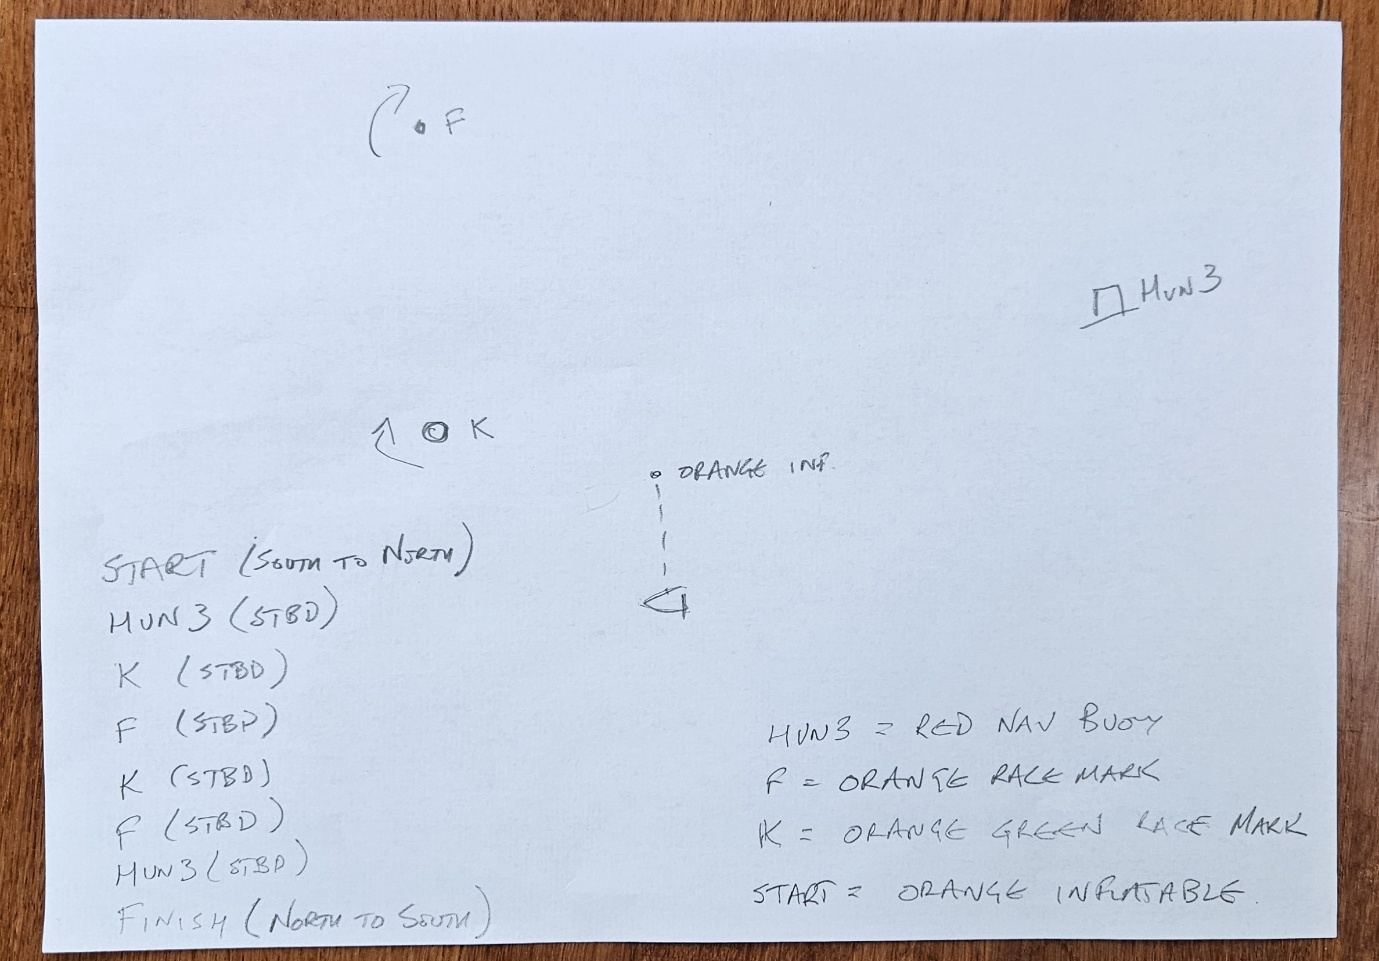 F
HUN3
K
ORANGE INF.
START (SOUTH TO NORTH)
HUN3 (STBD)
K (STBD)
F (STBD)
K (STBD)
F (STBD)
HUN3 (STBD)
FINISH (NORTH TO SOUTH)
HUN3 = RED NAV BUOY
F = ORANGE RACE MARK
K = ORANGE GREEN RACE MARK
START = ORANGE INFLATABLE.